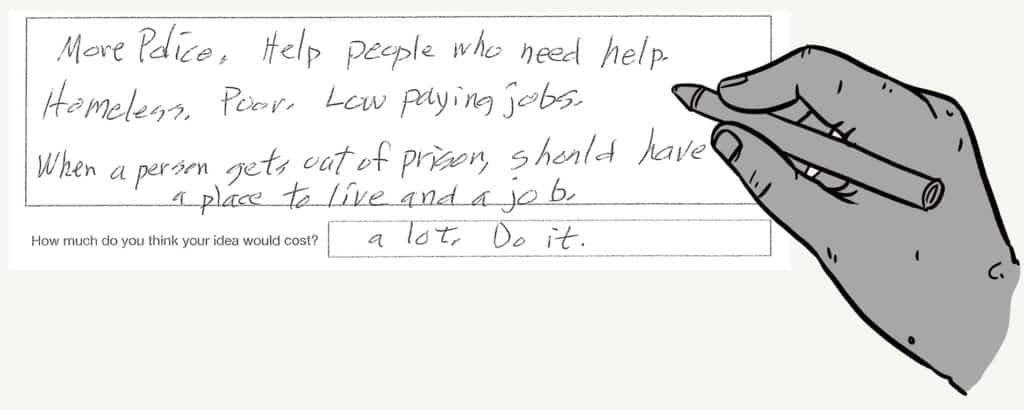 More Police. Help people who need help.
Homeless. Poor. Low paying jobs.
When a person gets out of prison, should have
a place to live and a job.
How much do you think your idea would cost? a lot. Do it.